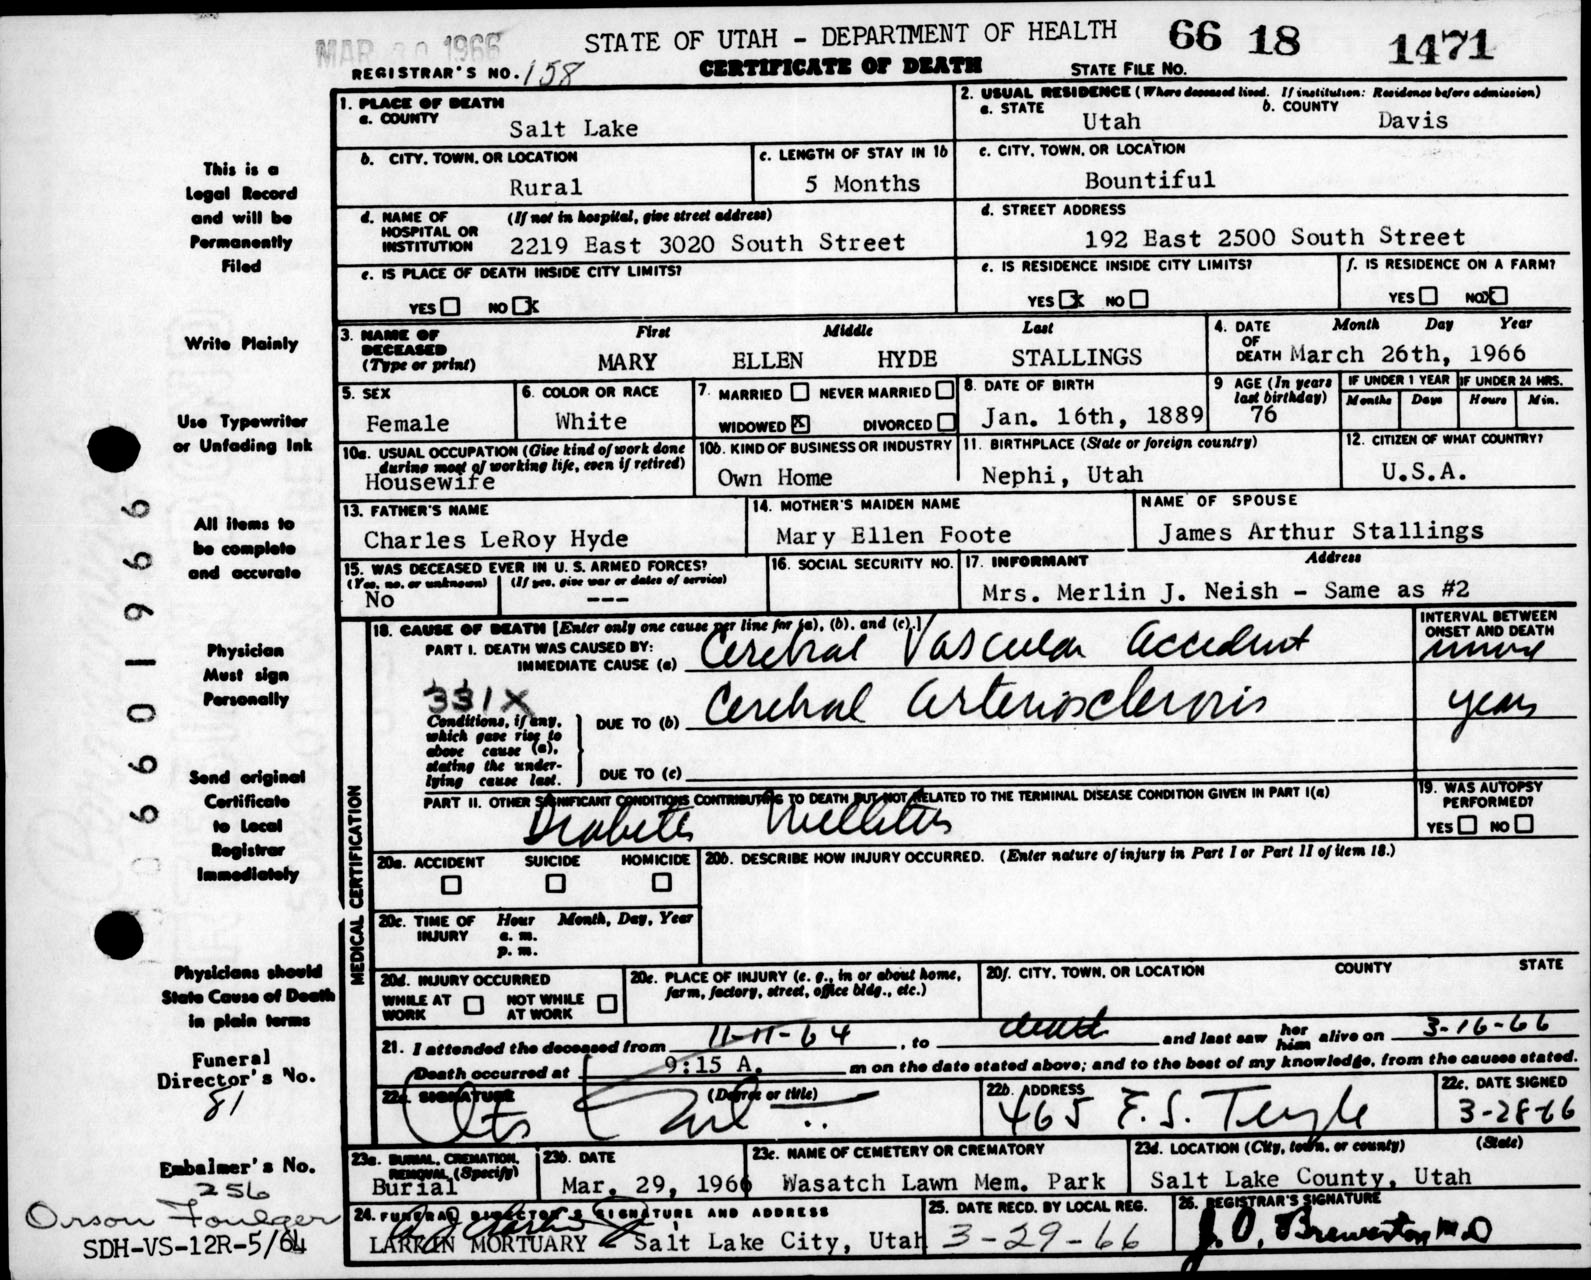 MAR 30 1966
STATE OF UTAH - DEPARTMENT OF HEALTH 66 18 1471
REGISTRAR'S NO. 158 CERTIFICATE OF DEATH STATE FILE NO.
1. PLACE OF DEATH
a. COUNTY
Salt Lake
2. USUAL RESIDENCE (Where deceased lived. If institution: Residence before admission)
a. STATE b. COUNTY
Utah Davis
b. CITY, TOWN, OR LOCATION
Rural
c. LENGTH OF STAY IN 1b
5 Months
c. CITY, TOWN, OR LOCATION
Bountiful
d. NAME OF HOSPITAL OR INSTITUTION (If not in hospital, give street address)
2219 East 3020 South Street
d. STREET ADDRESS
192 East 2500 South Street
e. IS PLACE OF DEATH INSIDE CITY LIMITS?
YES NO X
e. IS RESIDENCE INSIDE CITY LIMITS?
YES X NO
f. IS RESIDENCE ON A FARM?
YES NO X
3. NAME OF DECEASED (Type or print) First Middle Last
MARY ELLEN HYDE STALLINGS
4. DATE OF DEATH Month Day Year
March 26th, 1966
5. SEX
Female
6. COLOR OR RACE
White
7. MARRIED NEVER MARRIED
WIDOWED X DIVORCED
8. DATE OF BIRTH
Jan. 16th, 1889
9 AGE (In years last birthday)
76
IF UNDER 1 YEAR IF UNDER 24 HRS.
Months Days Hours Min.
10a. USUAL OCCUPATION (Give kind of work done during most of working life, even if retired)
Housewife
10b. KIND OF BUSINESS OR INDUSTRY
Own Home
11. BIRTHPLACE (State or foreign country)
Nephi, Utah
12. CITIZEN OF WHAT COUNTRY?
U.S.A.
13. FATHER'S NAME
Charles LeRoy Hyde
14. MOTHER'S MAIDEN NAME
Mary Ellen Foote
NAME OF SPOUSE
James Arthur Stallings
15. WAS DECEASED EVER IN U. S. ARMED FORCES?
(Yes, no, or unknown) (If yes, give war or dates of service)
No ---
16. SOCIAL SECURITY NO.
17. INFORMANT Address
Mrs. Merlin J. Neish - Same as #2
MEDICAL CERTIFICATION
18. CAUSE OF DEATH [Enter only one cause per line for (a), (b), and (c).]
INTERVAL BETWEEN ONSET AND DEATH
PART I. DEATH WAS CAUSED BY:
IMMEDIATE CAUSE (a) Cerebral Vascular Accident
331X
Conditions, if any, which gave rise to above cause (a), stating the underlying cause last.
DUE TO (b) Cerebral arteriosclerosis years
DUE TO (c)
PART II. OTHER SIGNIFICANT CONDITIONS CONTRIBUTING TO DEATH BUT NOT RELATED TO THE TERMINAL DISEASE CONDITION GIVEN IN PART I(a)
Diabetes Mellitus
19. WAS AUTOPSY PERFORMED?
YES NO
20a. ACCIDENT SUICIDE HOMICIDE
20b. DESCRIBE HOW INJURY OCCURRED. (Enter nature of injury in Part I or Part II of item 18.)
20c. TIME OF INJURY Hour Month, Day, Year
a. m.
p. m.
20d. INJURY OCCURRED
WHILE AT WORK NOT WHILE AT WORK
20e. PLACE OF INJURY (e. g., in or about home, farm, factory, street, office bldg., etc.)
20f. CITY, TOWN, OR LOCATION COUNTY STATE
21. I attended the deceased from 11-11-64, to death and last saw her him alive on 3-16-66
Death occurred at 9:15 A. m on the date stated above; and to the best of my knowledge, from the causes stated.
22a. SIGNATURE (Degree or title)
22b. ADDRESS
465 E. S. Temple
22c. DATE SIGNED
3-28-66
23a. BURIAL, CREMATION, REMOVAL (Specify)
Burial
23b. DATE
Mar. 29, 1966
23c. NAME OF CEMETERY OR CREMATORY
Wasatch Lawn Mem. Park
23d. LOCATION (City, town, or county) (State)
Salt Lake County, Utah
24. FUNERAL DIRECTOR'S SIGNATURE AND ADDRESS
LARKIN MORTUARY - Salt Lake City, Utah
25. DATE RECD. BY LOCAL REG.
3-29-66
26. REGISTRAR'S SIGNATURE
J. O. Brewerton M D
This is a
Legal Record
and will be
Permanently
Filed
Write Plainly
Use Typewriter
or Unfading Ink
All items to
be complete
and accurate
Physician
Must sign
Personally
Send original
Certificate
to Local
Registrar
Immediately
Physicians should
State Cause of Death
in plain terms
Funeral
Director's No.
81
Embalmer's No.
256
Orson Foulger
SDH-VS-12R-5/64
06601966